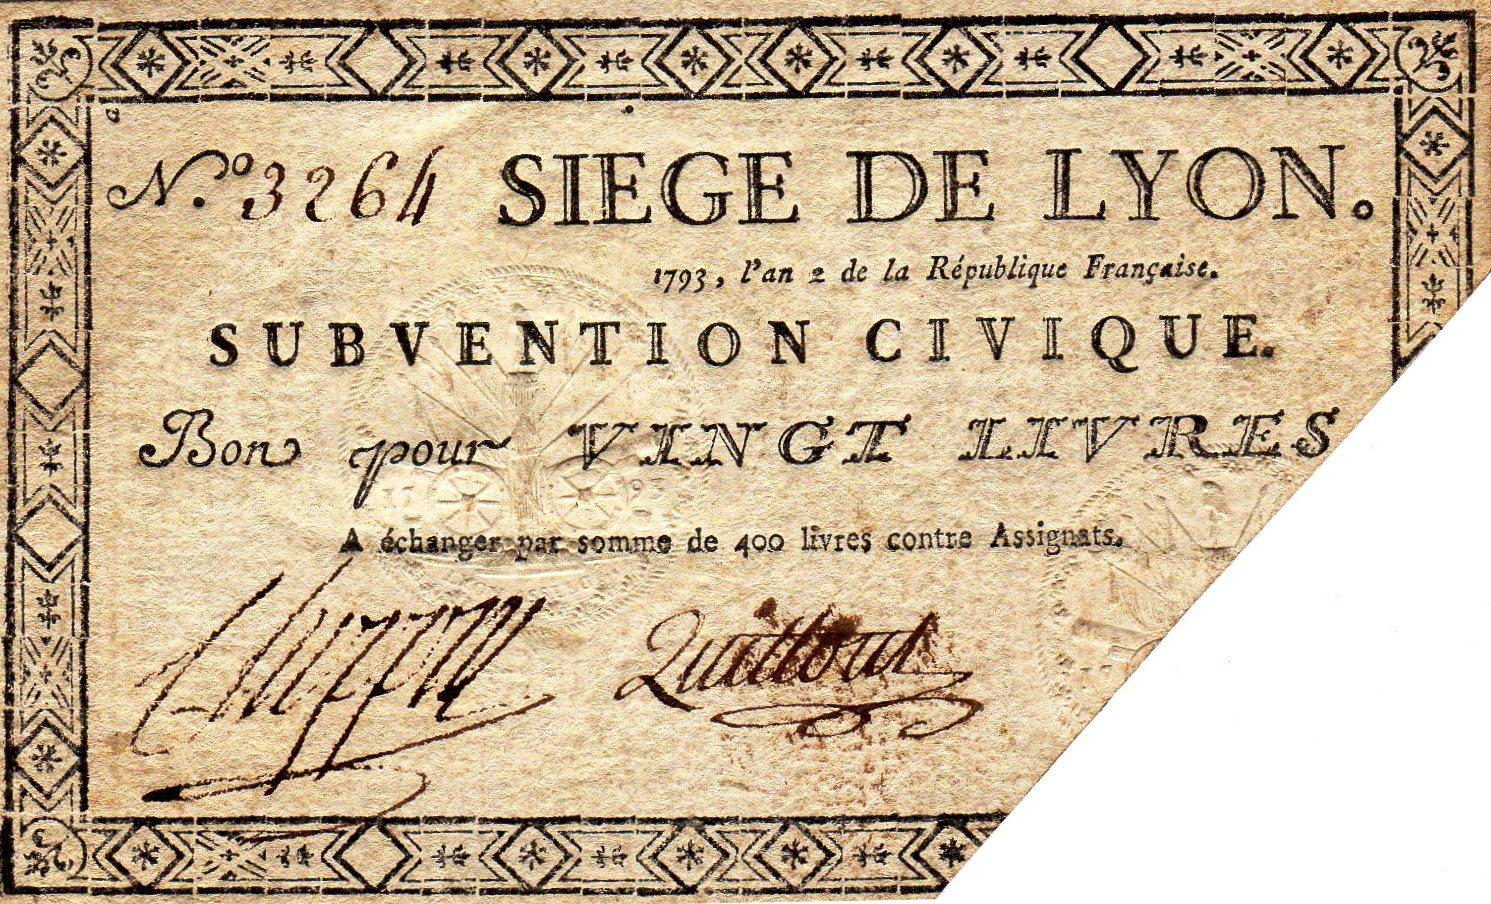 N.º 3264 SIEGE DE LYON.
1793, l'an 2 de la République Française.
SUBVENTION CIVIQUE.
Bon pour VINGT LIVRES
A échanger par somme de 400 livres contre Assignats.